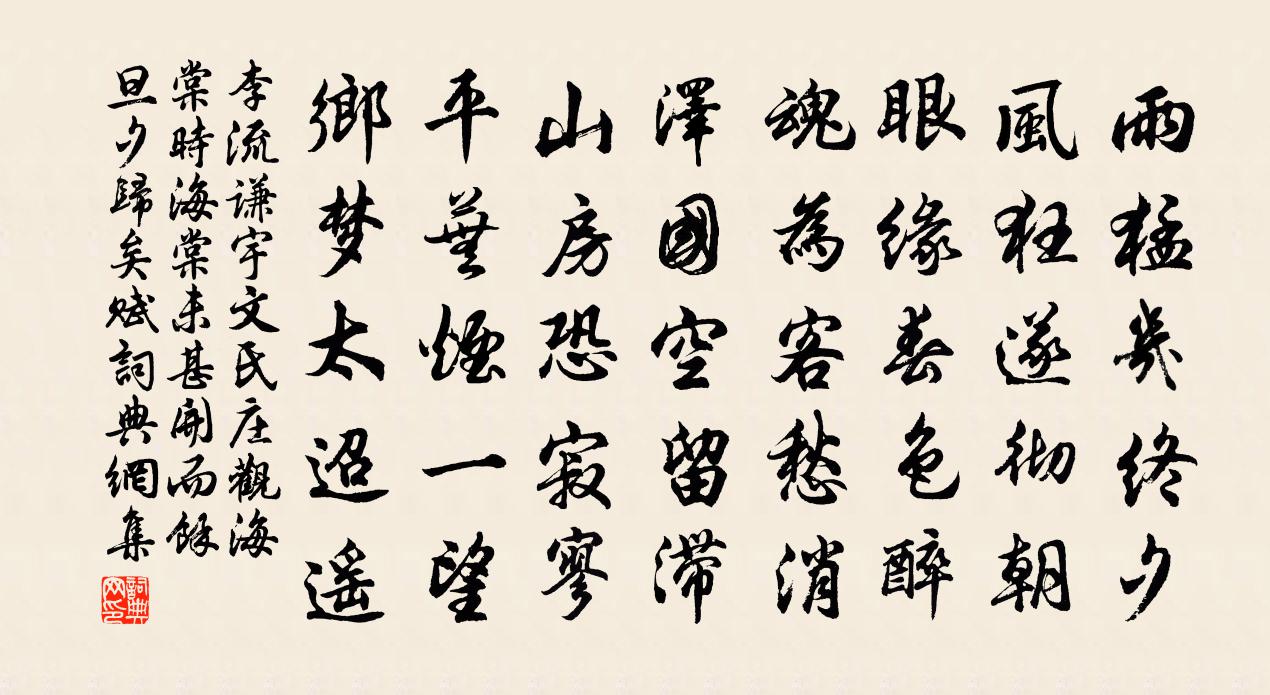 雨猛幾終夕
風狂遂徹朝
眼緣春色醉
魂為客愁消
澤國空留滯
山房恐寂寥
平蕪煙一望
鄉梦太迢遥
李流谦宇文氏庄觀海
棠時海棠未甚開而餘
旦夕歸矣赋詞典網集
詞典網印